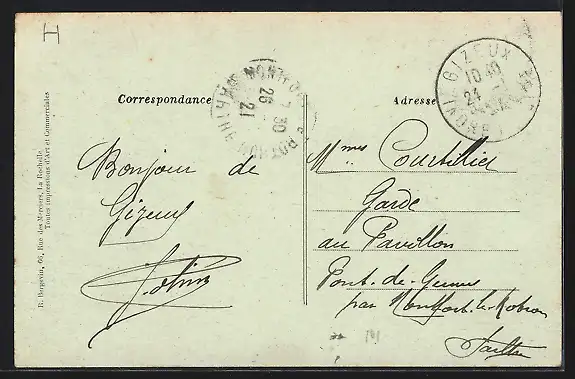 H
Correspondance
Adresse
GIZEUX
10 40
24
MONTFORT
7 30
26
21
SARTHE
R. Bergevin, 66, Rue des Merciers, La Rochelle
Toutes impressions d'Art et Commerciales
Bonjour de
Gizeux
Mmes Courtillier
Garde
au Pavillon
Pont-de-Gennes
par Montfort-le-Rotrou
Sarthe